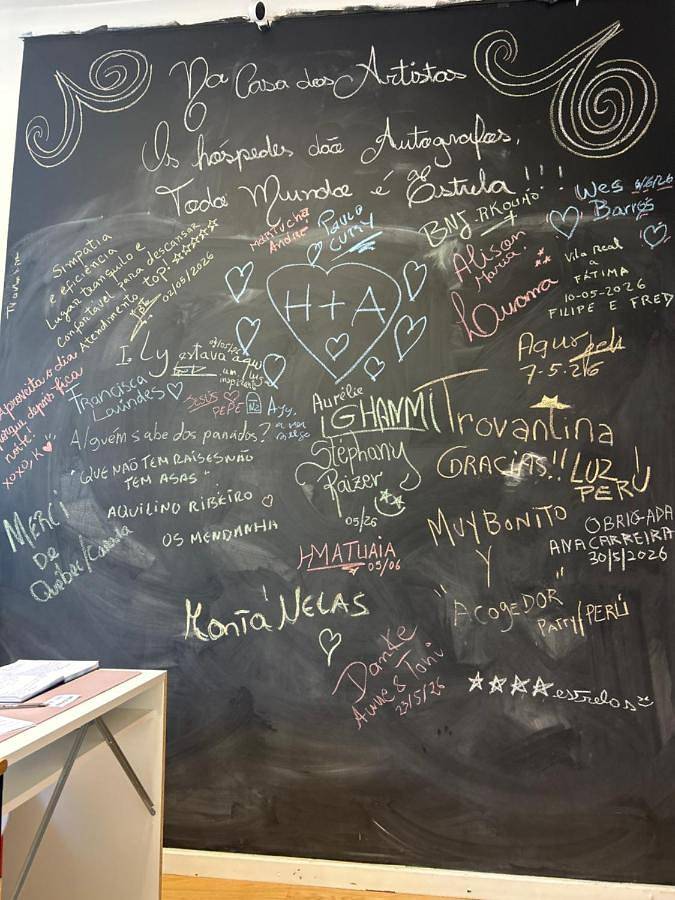 Na Casa dos Artistas
Os hóspedes dão Autografos,
Todo Mundo é Estrela!!!
Simpatia
e eficiência
Lugar tranquilo e
confortável para descansar
Atendimento top!
02/05/2026
Martucha
André
Paulo
CURRY
BNJ.
Wes 9/6/26
Barros
Aliscan
Maria!
Luana
Vila Real
a
FÁTIMA
10-05-2026
FILIPE E FRED
H + A
I. Ly estava aqui
um
Aproveita o dia
porque depois fica
noite!
xoxo, K
Francisca
Lavindes
JESÚS
PEPE
Aurélie
GHANMI
Stéphany
Raizer
05/26
Agus
7-5-26
Trovantina
GRACIAS!! LUZ
PERU!
Alguém sabe dos panados?
"QUE NÃO TEM RAISES NÃO
TEM ASAS"
AQUILINO RIBEIRO
OS MENDANHA
MERCI
DE
Québec/Canada
HMATUAIA
05/06
MUY BONITO
Y
"ACOGEDOR"
PATTY/PERÚ
OBRIGADA
ANA CARREIRA
30/5/2026
NELAS
Danke
Anne & Toni
23/5/26
estrelas